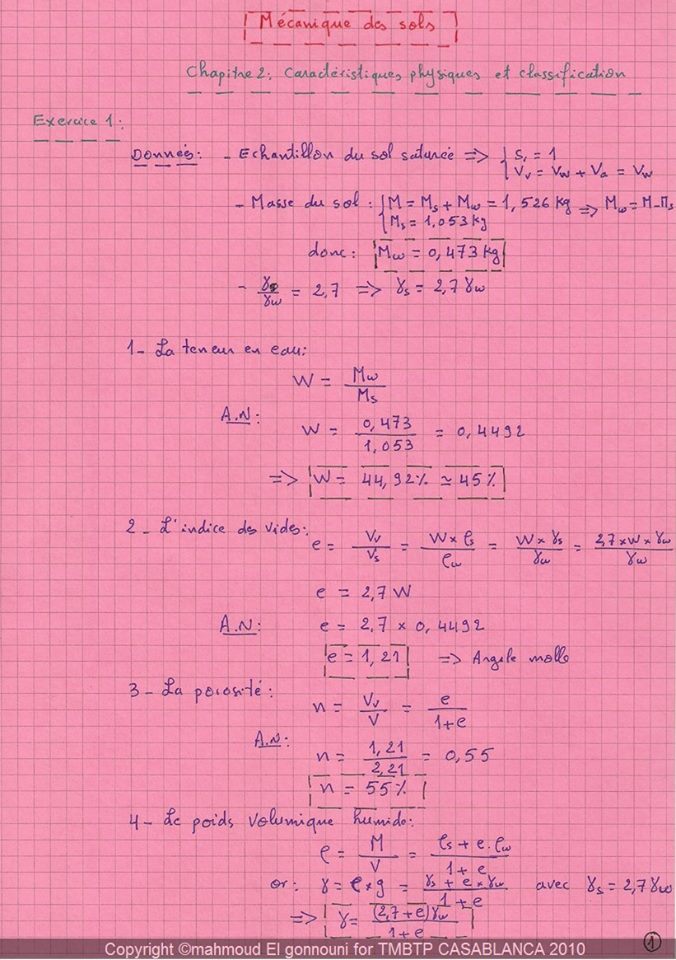 Mécanique des sols
Chapitre 2: Caractéristiques physiques et classification
Exercice 1:
Données: - Echantillon du sol saturée => { Sr = 1
Vv = Vw + Va = Vw
- Masse du sol : { M = Ms + Mw = 1,526 kg => Mw = M-Ms
Ms = 1,053 kg
donc: Mw = 0,473 kg
- γs/γw = 2,7 => γs = 2,7 γw
1- La teneur en eau:
W = Mw/Ms
A.N: W = 0,473/1,053 = 0,4492
=> W = 44,92% ≃ 45%
2- L'indice des vides:
e = Vv/Vs = W×ρs/ρw = W×γs/γw = 2,7×W×γw/γw
e = 2,7 W
A.N: e = 2,7 × 0,4492
e = 1,21 => Argile molle
3- La porosité:
n = Vv/V = e/1+e
A.N: n = 1,21/2,21 = 0,55
n = 55%
4- Le poids volumique humide:
ρ = M/V = ρs + e.ρw/1+e
or: γ = ρ×g = γs + e×γw/1+e avec γs = 2,7γw
=> γ = (2,7+e)γw/1+e
1
Copyright ©mahmoud El gonnouni for TMBTP CASABLANCA 2010